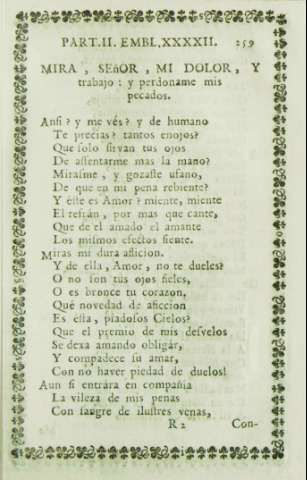 PART.II. EMBL.XXXXII. 259
MIRA , SEñOR , MI DOLOR, Y
trabajo : y perdoname mis
pecados.
Ansi ? y me vés ? y de humano
Te precias ? tantos enojos?
Que solo sirvan tus ojos
De assentarme mas la mano?
Mirasme, y gozaste ufano,
De que en mi pena rebiente?
Y este es Amor ? miente, miente
El refrán, por mas que cante,
Que de el amado el amante
Los mismos efectos siente.
Miras mi dura aflicion.
Y de ella, Amor, no te dueles?
O no son tus ojos fieles,
O es bronce tu corazon,
Qué novedad de aficcion
Es ésta, piadosos Cielos?
Que el premio de mis desvelos
Se dexa amando obligár,
Y compadece su amar,
Con no haver piedad de duelos!
Aun si entrára en compañia
La vileza de mis penas
Con sangre de ilustres venas,
R 2 Con-